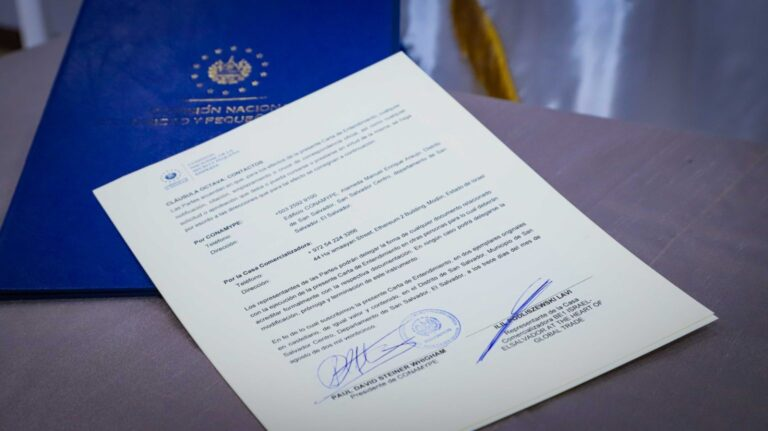 CLÁUSULA OCTAVA. CONTACTOS
Las Partes acuerdan en que, para los efectos de la presente Carta de Entendimiento, cualquier
por escrito a las direcciones que para tal efecto se consignan a continuación:
Por CONAMYPE:
Teléfono: +503 2592 9100
Dirección: Edificio CONAMYPE, Alameda Manuel Enrique Araujo, Distrito
de San Salvador, San Salvador Centro, departamento de San
Salvador, El Salvador.
Por la Casa Comercializadora:
Teléfono: + 972 54 224 3266
Dirección: 44 Ha amaayan Street, Ethereum 2 Building, Modiin, Estado de Israel
Los representantes de las Partes podrán delegar la firma de cualquier documento relacionado
con la ejecución de la presente Carta de Entendimiento en otras personas para lo cual deberán
acreditar formalmente con la respectiva documentación. En ningún caso podrá delegarse la
modificación, prórroga y terminación de este instrumento.
En fe de lo cual suscribimos la presente Carta de Entendimiento, en dos ejemplares originales
en castellano, de igual valor y contenido, en el Distrito de San Salvador, Municipio de San
Salvador Centro, Departamento de San Salvador, El Salvador, a los trece días del mes de
agosto de dos mil veinticinco.
PAUL DAVID STEINER WHIGHAM
Presidente de CONAMYPE
LAVI
Representante de la Casa
Comercializadora BE1 ISRAEL
ELSALVADOR AT THE HEART OF
GLOBAL TRADE